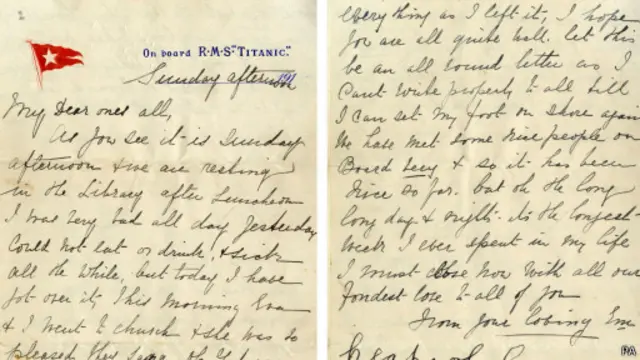 On board R.M.S "TITANIC."
Sunday afternoon
My Dear ones all,
As you see it is Sunday
afternoon & we are resting
in the Library after Luncheon
I was very bad all day Yesterday
Could not eat or drink, & sick
all the while, but today I have
got over it, This morning Eva
& I went to church & she was so
pleased they sang
everything as I left it, I hope
you are all quite well. let this
be an all round letter as I
Cant write properly to all till
I can set my foot on shore again
We have met some nice people on
Board & so it has been
nice so far. but oh the long
long day & nights its the longest
week I ever spent in my life
I must close Now with all our
fondest love to all of you
from your loving Em
PA